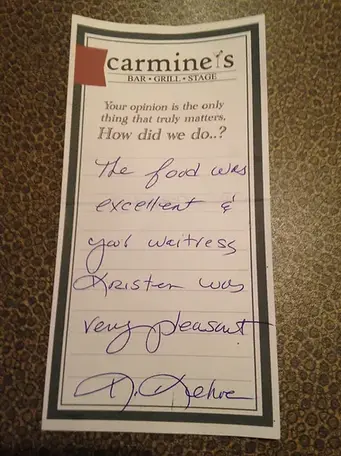 carmine's
BAR • GRILL • STAGE
Your opinion is the only
thing that truly matters.
How did we do..?
The food was
excellent &
your waitress
Kristen was
very pleasant